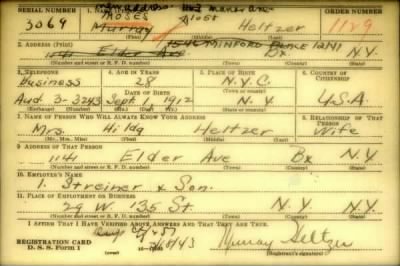 SERIAL NUMBER 1. NAME (Print) ORDER NUMBER
MOSES
3069 Murray Heltzer 1129
2. ADDRESS (Print) 1546 MINFORD PLACE
1141 Elder Ave Bx N.Y.
(Number and street or R. F. D. number) (Town) (County) (State)
3. TELEPHONE 4. AGE IN YEARS 5. PLACE OF BIRTH 6. COUNTRY OF CITIZENSHIP
Business 28 N.Y.C.
DATE OF BIRTH (Town or county)
Aud. 3-3243 Sept 1912 N.Y. U.S.A.
7. NAME OF PERSON WHO WILL ALWAYS KNOW YOUR ADDRESS 8. RELATIONSHIP OF THAT PERSON
Mrs. Hilda Heltzer Wife
9. ADDRESS OF THAT PERSON
1141 Elder Ave Bx N.Y.
(Number and street or R. F. D. number) (Town) (County) (State)
10. EMPLOYER'S NAME
I. Streiner & Son.
11. PLACE OF EMPLOYMENT OR BUSINESS
29 W 135 St. N.Y. N.Y.
(Number and street or R. F. D. number) (Town) (County) (State)
I AFFIRM THAT I HAVE VERIFIED ABOVE ANSWERS AND THAT THEY ARE TRUE.
REGISTRATION CARD
D. S. S. FORM 1 Murray Heltzer
(Registrant's signature)